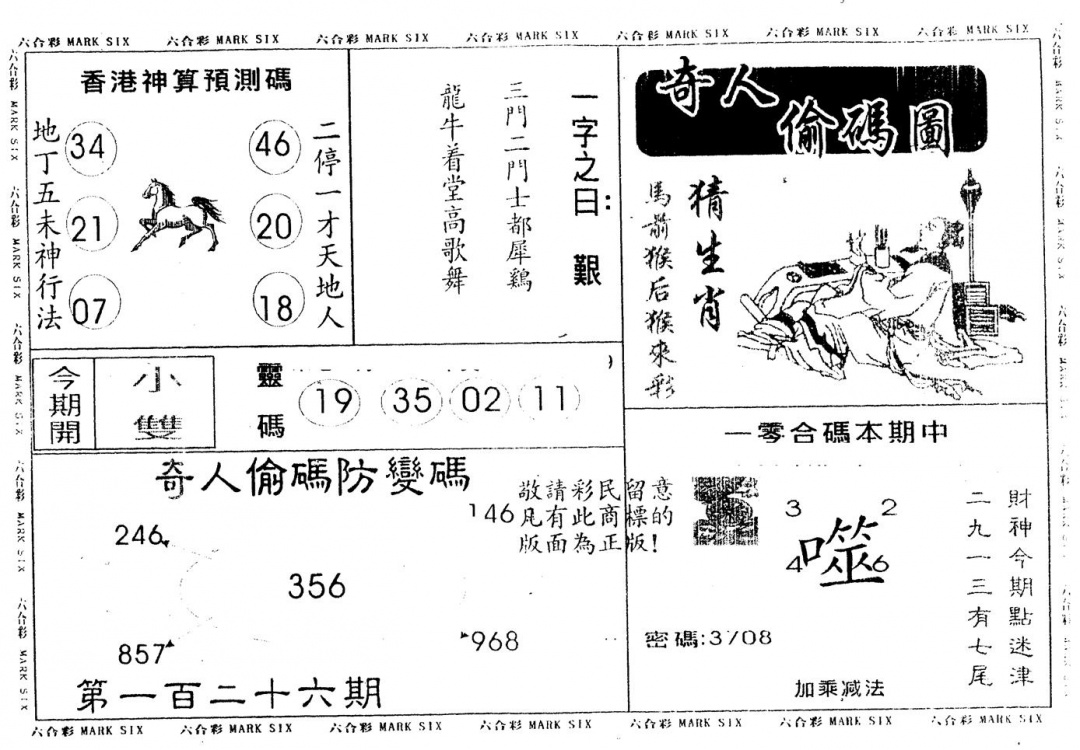 六合彩 MARK SIX 六合彩 MARK SIX 六合彩 MARK SIX 六合彩 MARK SIX 六合彩 MARK SIX 六合彩 MARK SIX 六合彩 MARK SIX
香港神算預測碼
地丁五未神行法
34
46
21
20
07
18
二停一才天地人
一字之曰: 艱
三門二門士都犀鷄
龍牛着堂高歌舞
奇人偷碼圖
猜生肖
馬前猴后猴來彩
今期開
小雙
靈碼
19 35 02 11
一零合碼本期中
奇人偷碼防變碼
246
146
356
857
968
敬請彩民留意
凡有此商標的
版面為正版!
第一百二十六期
3 2
噬
4 6
密碼:3708
加乘减法
財神今期點迷津
二九一三有七尾
六合彩 MARK SIX 六合彩 MARK SIX 六合彩 MARK SIX 六合彩 MARK SIX 六合彩 MARK SIX 六合彩 MARK SIX 六合彩 MARK SIX